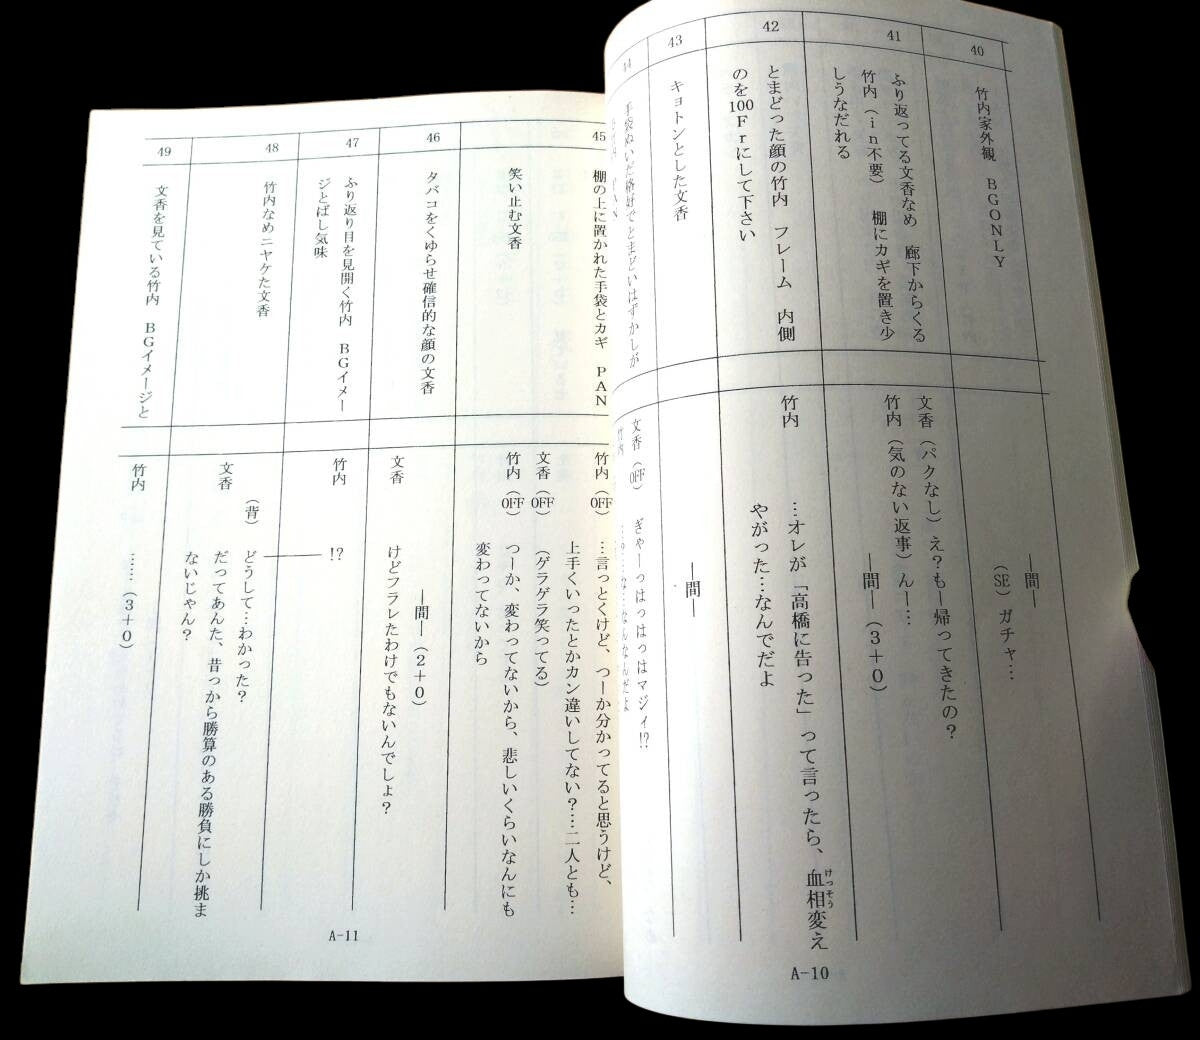 40
竹内家外観　BGONLY
―間―
（SE）ガチャ…
41
ふり返ってる文香なめ　廊下からくる
竹内（in不要）　棚にカギを置き少
しうなだれる
文香（パクなし）え？もー帰ってきたの？
竹内（気のない返事）んー…
―間―（3＋0）
42
とまどった顔の竹内　フレーム　内側
のを100Frにして下さい
竹内
…オレが「高橋に告った」って言ったら、血相変え
けっそう
やがった…なんでだよ
43
キョトンとした文香
―間―
44
手袋ぬいだ格好でとまどいはずかしが
文香（OFF）　ぎゃーっはっはっはマジィ!?
竹内
A-10
45
棚の上に置かれた手袋とカギ　PAN
笑い止む文香
竹内（OFF）　…言っとくけど、つーか分かってると思うけど、
上手くいったとかカン違いしてない？…二人とも…
文香（OFF）（ゲラゲラ笑ってる）
竹内（OFF）　つーか、変わってないから、悲しいくらいなんにも
変わってないから
46
タバコをくゆらせ確信的な顔の文香
―間―（2＋0）
文香　けどフラレたわけでもないんでしょ？
47
ふり返り目を見開く竹内　BGイメー
ジとばし気味
竹内　!?
48
竹内なめニヤケた文香
（背）　どうして…わかった？
文香　だってあんた、昔っから勝算のある勝負にしか挑ま
ないじゃん？
49
文香を見ている竹内　BGイメージと
竹内　……（3＋0）
A-11